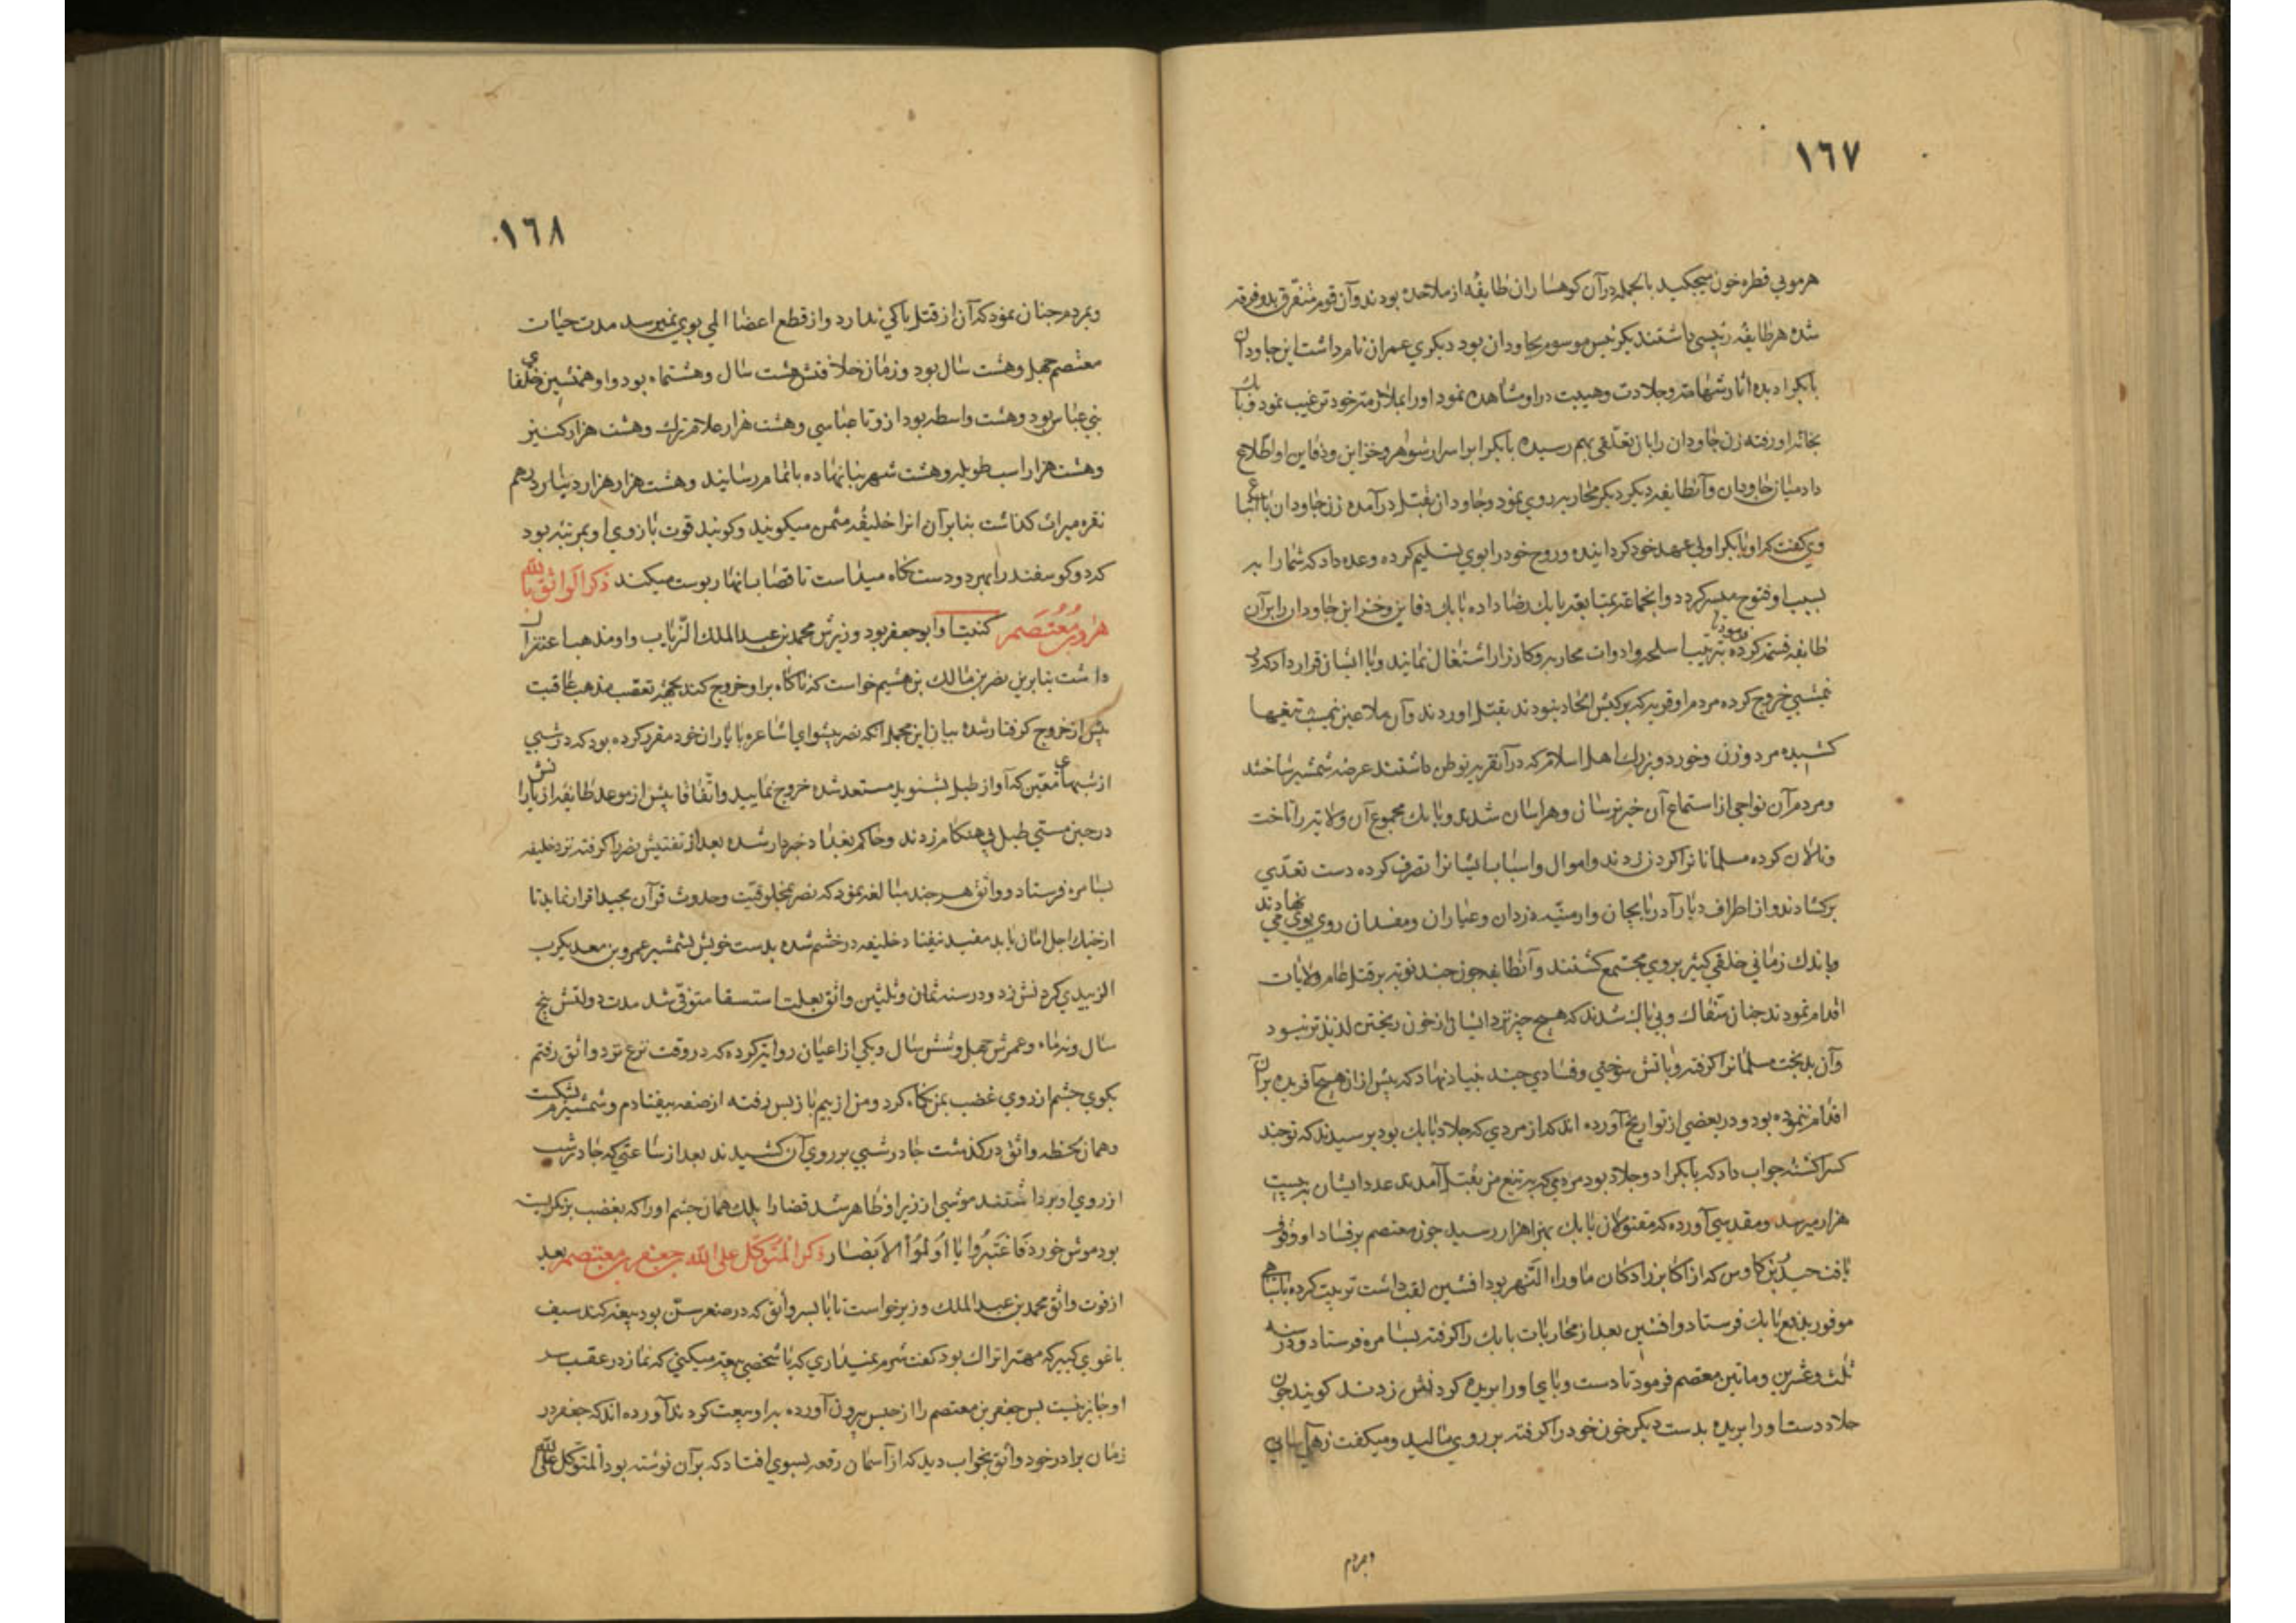 ١٦٧
هرمویی قطره خون میچکید بالجمله درآن کوهساران طایفه از ملاحده بودند وآن قوم متفرق بدو فرقه
شده هر طایفه رئیسی داشتند یک رئیس موسوم بجاودان بود دیکری عمران نام داشت این جاودان
بابکرا دیده اثار شهامت وجلادت وهیبت در او مشاهده نمود اورا بملازمت خود ترغیب نمود و بابک
بخانه او رفته زن جاودان را با او تعلقی بهم رسیده بابکرا بر اسرار شوهر وخزاین ودفاین او اطلاع
داد میان جاودان وآنطایفه دیکر محاربه روی نمود وجاودان بقتل درآمده زن جاودان با اتباع
وی کفت که او بابکرا ولی عهد خود کردانیده وروح خود را بوی تسلیم کرده وعده داد که شما را به
سبب او فتوح میسر کردد وانجماعت بمتابعت بابک رضا داده بابک دفاین وخزاین جاودان را برآن
طایفه قسمت کرده فرمود تا بترتیب اسلحه وادوات محاربه وکارزار اشتغال نمایند وبا ایشان قرار داد که در
نیمشبی خروج کرده مردم او قریه که برکیش الحاد نبودند بقتل اوردند وآن ملاعین نیمشب تیغها
کشیده مرد وزن وخورد وبزرک اهل اسلام که در آنقریه توطن داشتند عرضه شمشیر ساختند
ومردم آن نواحی از استماع آن خبر ترسان وهراسان شدند وبابک مجموع آن ولایت را تاخت
وتالان کرده مسلمانانرا کردن زدند واموال واسباب ایشانرا تصرف کرده دست تعدی
برکشادند واز اطراف دیار آذربایجان وارمنیه دزدان وعیاران ومفسدان روی بوی می نهادند
وباندک زمانی خلقی کثیر بروی مجتمع کشتند وآنطایفه چون چند نوبت برقتل عام ولایات
اقدام نمودند چنان سفاک وبی باک شدند که هیچ چیز نزد ایشان از خون ریختن لذیذتر نبود
وآن بدبخت مسلمانرا کرفته وباتش سوختی وفسادی چند بنیاد نهاد که پیش از آن هیچ آفریده برآن
اقدام ننموده بود ودر بعضی از تواریخ آورده اند که از مردی که جلاد بابک بود پرسیدند که تو چند
کس را کشته جواب داد که بابکرا دو جلاد بود مردمی که بر تیغ من بقتل آمدند عدد ایشان به بیست
هزار میرسد ومقدسی آورده که مقتولان بابک بهزار هزار رسید چون معتصم بر فساد او وقوف
یافت حیدر بن کاوس که از اکابر زادکان ماوراء النهر بود افشین لقب داشت تربیت کرده با سپاهی
موفور بدفع بابک فرستاد وافشین بعد از محاربات بابک را کرفته بسامره فرستاد ودر سنه
ثلث وعشرین وماتین معتصم فرمود تا دست وپای او را بریده کردنش زدند کویند چون
جلاد دست او را بریده بدست دیکر خون خود را کرفته بر روی مالید ومیکفت زهی اسانی
وبمردم
١٦٨
وبمردم چنان نمود که آن از قتل باکی ندارد واز قطع اعضا المی بوی نمیرسد مدت حیات
معتصم چهل وهشت سال بود وزمان خلافتش هشت سال وهشتماه بود واو هشتمین خلفای
بنی عباس بود وهشت واسطه بود از و تا عباسی وهشت هزار غلام ترک وهشت هزار کنیز
وهشت هزار اسب طویله وهشت شهر بنا نهاده باتمام رسانید وهشت هزار هزار دینار درهم
نقره میراث کذاشت بنابر آن انرا خلیفه مثمن میکویند وکویند قوت بازوی او بمرتبه بود
که دو کوسفند را بهر دو دست نکاه میداشت تا قصاب انها را پوست میکند ذکر الواثق بالله
هارون بن معتصم کنیت او ابو جعفر بود وزیرش محمد بن عبد الملک الزیات واو مذهب اعتزال
داشت بنابرین نصر بن مالک بن هشیم خواست که ناکاه بر او خروج کند بجهة تعقب مذهب عاقبت
پیش از خروج کرفتار شده بیان این مجمل آنکه نصر پیشوای اشاعره با یاران خود مقرر کرده بود که در شبی
از شبهای معین که آواز طبل بشنوید مستعد شده خروج نمایید واتفاقا پیش از موعد طایفه از یارانش
در حین مستی طبل بی هنکام زدند وحاکم بغداد خبردار شده بعد از تفتیش نصر را کرفته نزد خلیفه
بسامره فرستاد وواثق هرچند مبالغه نمود که نصر بمخلوقیت وحدوث قرآن مجید اقرار نماید تا
از چنک اجل امان یابد مفید نیفتاد خلیفه در خشم شده بدست خویش بشمشیر عمرو بن معدیکرب
الزبیدی کردنش زد ودر سنه ثمان وثلثین واثق بعلت استسقا متوفی شد مدت دولتش پنج
سال ونه ماه وعمرش چهل وشش سال ویکی از اعیان روایت کرده که در وقت نزع نزد واثق رفتم
بکوی چشم از روی غضب بمن نکاه کرد ومن از بیم باز پس رفته از صفه بیفتادم وشمشیرم بشکست
وهمان لحظه واثق درکذشت چادر شبی بر روی آن کشیدند بعد از ساعتی که چادر شب
از روی او برداشتند موشی از زیر او ظاهر شد قضا را یلک همان چشم او را که بغضب نکریسته
بود موش خورد فاعتبروا یا اولوا الابصار ذکر المتوکل علی الله جعفر بن معتصم بعد
از فوت واثق محمد بن عبد الملک وزیر خواست تا با پسر واثق که در صغر سن بود بیعت کند سیف
باغوی کبیر که مهتر اتراک بود کفت شرم نمیداری که با شخصی بیعت میکنی که نماز در عقب
او جایز نیست پس جعفر بن معتصم را از حبس بیرون آورده براو بیعت کردند آورده اند که جعفر در
زمان برادر خود واثق بخواب دید که از آسمان رقعه بسوی افتاد که برآن نوشته بود المتوکل علی الله